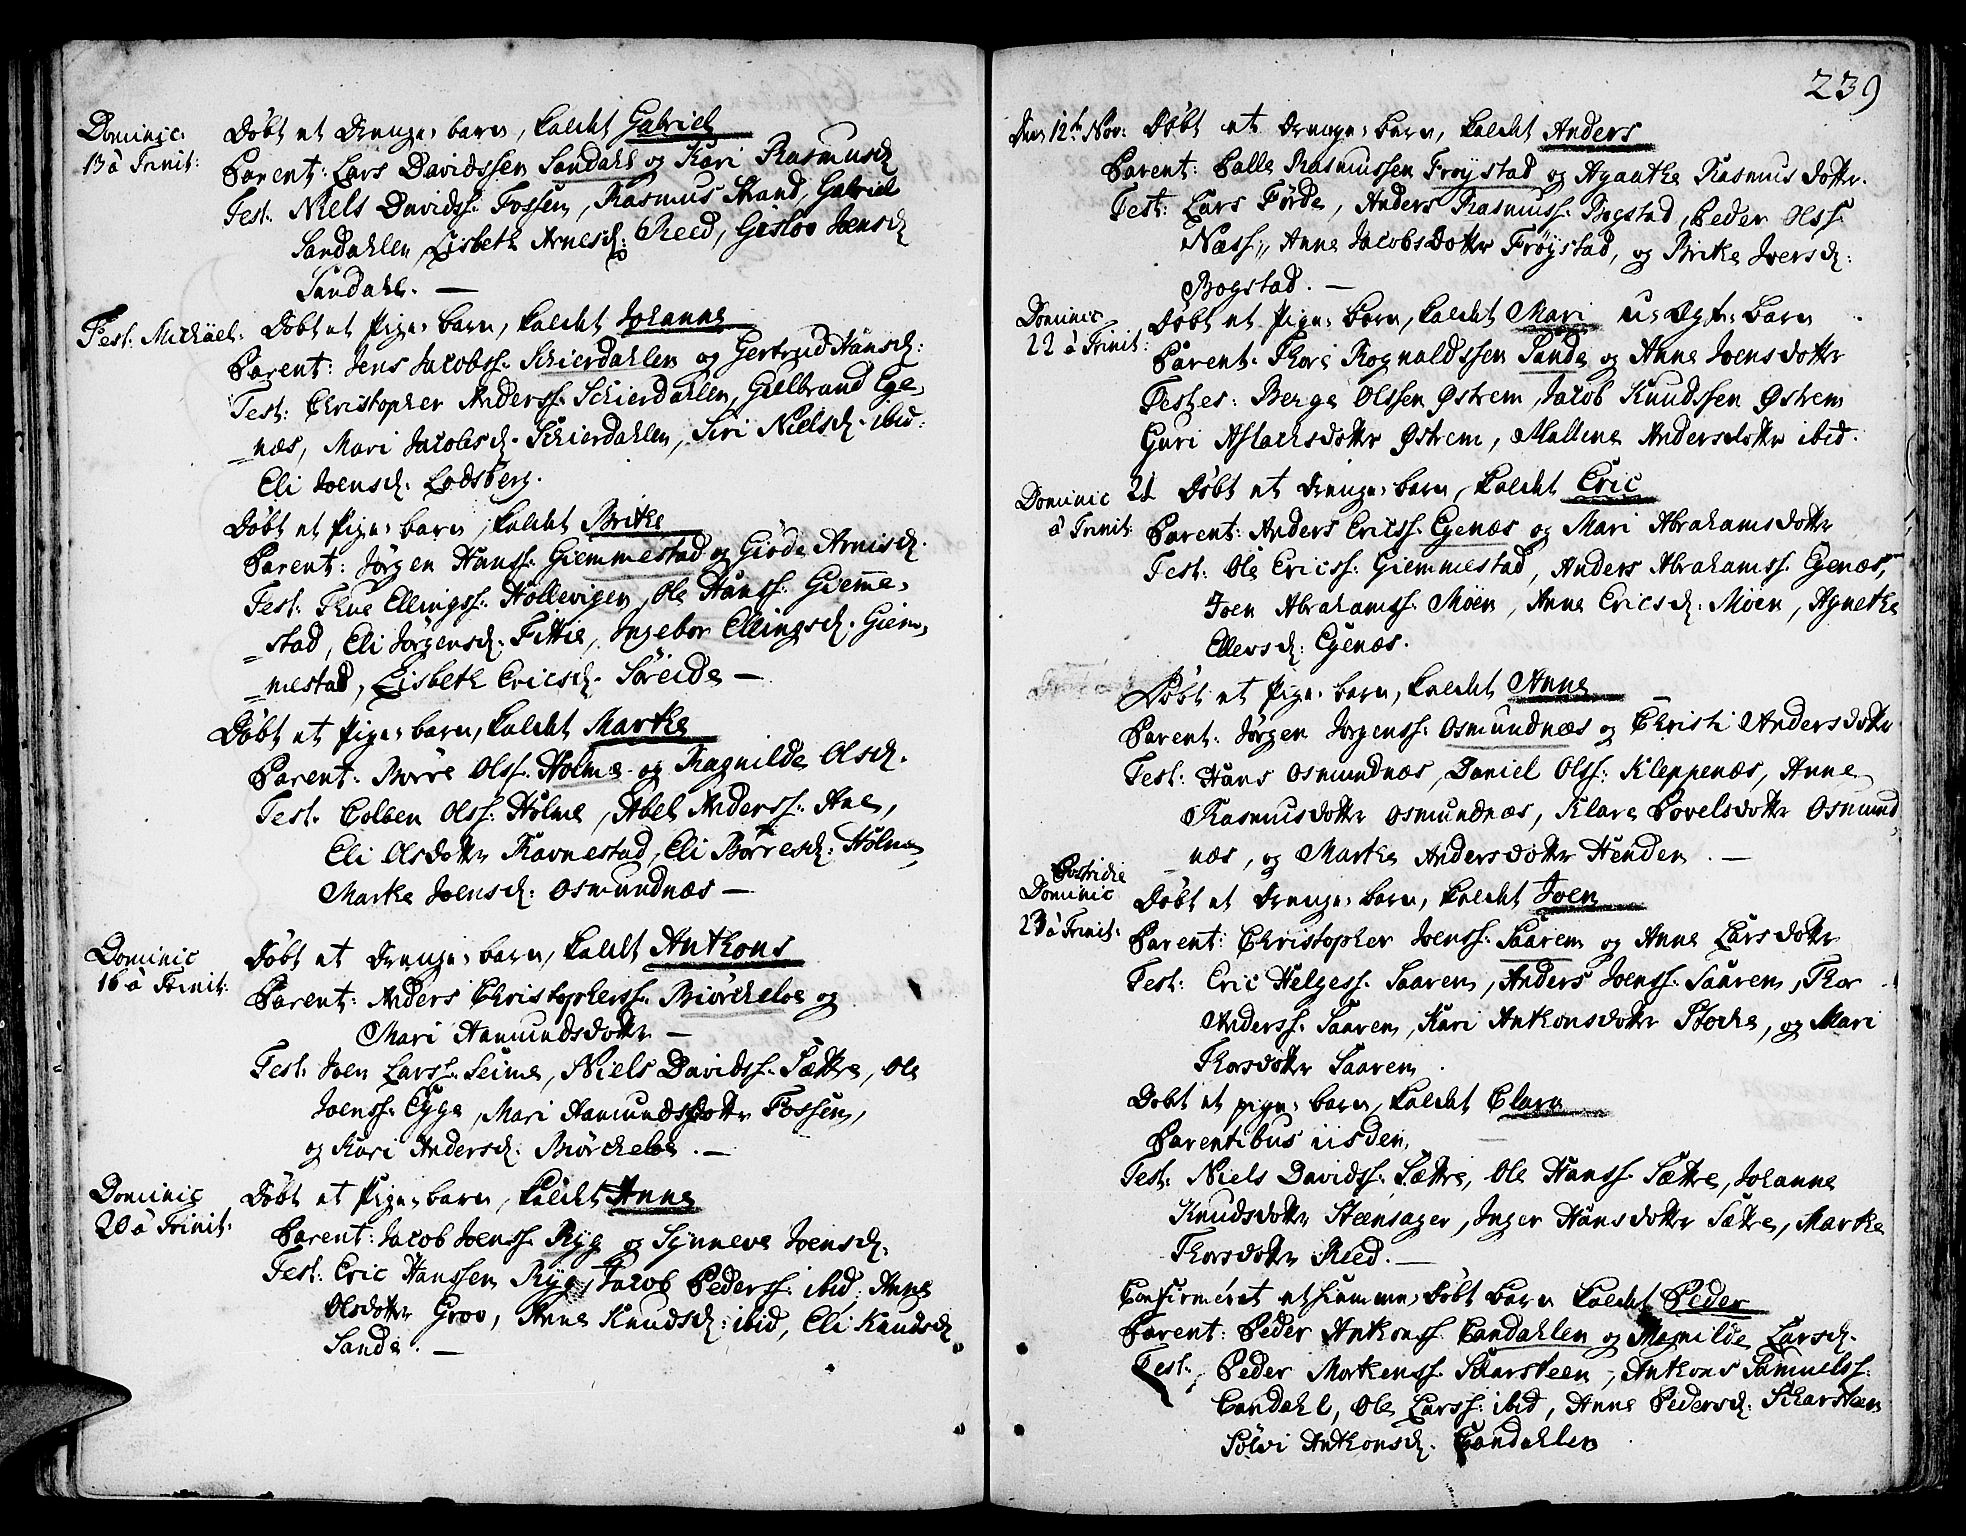 Dominic: Døbt et Drenge-barn, kaldet Gabriel
13 â Trinit: Parent: Lars Davidssen Sandahl og Kari Rasmusd.
Test. Niels Davidss: Fossen, Rasmus Strand, Gabriel
Sandahlen, Lisbeth Arnesd: Reed, Gislov Joensd.
Sandahl. —
Fest: Michäel: Døbt et Pige-barn, kaldet Johanne
Parent: Jens Jacobss: Schierdahlen og Gertrud Hansd:
Test: Christopher Anderss: Schierdahlen, Gulbrand Ege-
næs, Mari Jacobsd. Schierdahlen, Siri Nielsd. ibid:
Eli Joensd. Lodsberg.
Døbt et Pige-barn, kaldet Brithe
Parent: Jørgen Hanss: Giemmestad og Giøde Arnisd.
Test: Thue Ellingss: Hollevigen, Ole Hanss: Giem̄e-
stad, Eli Jørgensd: Fittie, Ingebor Ellingsd. Giem-
mestad, Lisbeth Ericsd. Søreide —
Døbt et Pige-barn, kaldet Marthe
Parent: Børre Olss. Holme og Ragnilde Olsd.
Test. Colben Olss: Holme, Abel Anderss: Ane,
Eli Olsdotter Ravnestad, Eli Børresd: Holme,
Marthe Joensd: Osmundnæs —
Dominic Døbt et Drenge-barn, kaldet Anthons
16 â Trinit: Parent: Anders Christopherss. Biørcheloe og
Mari Aamundsdotter —
Test: Joen Larss. Seime, Niels Davidss. Sættre, Ole
Joenss: Egge, Mari Aamundsdotter Fossen,
og Kari Andersd: Biørcheloe. —
Dominic Døbt et Pige-barn, kaldet Anne
20 â Trinit: Parent: Jacob Joenss. Ryg og Synneve Joensd.
Test: Eric Hanssen Ryg, Jacob Pederss: ibid: Anne
Olsdotter Grov, Anne Knudsd: ibid, Eli Knudsd
Sande. —
239
Den 12te Nov: Døbt et Drenge-barn, kaldet Anders
Parent: Palle Rasmussen Frøystad og Aganthe Rasmusdotter.
Test: Lars Førde, Anders Rasmuss. Bogstad, Peder Olss.
Næss, Anne Jacobsdotter Frøystad, og Brithe Joersd:
Bogstad. —
Dominic Døbt et Pige-barn, kaldet Mari u-Ægte-Barn
22 â Trinit: Parent. Thore Rognaldssen Sande og Anne Joensdotter
Testes: Berge Olssen Østrem, Jacob Knudssen Østrem
Guri Aslachsdotter Østrem, Mallene Andersdotter ibid.
Dominic 21 Døbt et Drenge-barn, kaldet Eric
â Trinit: Parent: Anders Ericss. Egenæs og Mari Abrahamsdotter
Test: Ole Ericss: Giemmestad, Anders Abrahamss. Egenæs,
Joen Abrahamss. Moen, Anne Ericsd: Moen, Agnethe
Ellersd: Egenæs.
Døbt et Pige-barn, kaldet Anne
Parent: Jørgen Jørgenss: Osmundnæs og Christi Andersdotter
Test: Hans Osmundnæs, Daniel Olss: Kleppenæs, Anne
Rasmusdotter Osmundnæs, Klare Povelsdotter Osmund-
næs, og Marthe Andersdotter Henden. —
Postridie
Dominic Døbt et Drenge-barn, kaldet Joen
23 â Trinit: Parent: Christopher Joenss: Saaren og Anne Larsdotter
Test: Eric Helgess. Saaren, Anders Joenss: Saaren, Thor
Anderss. Saaren, Kari Anthonsdotter Stoche, og Mari
Thorsdotter Saaren.
Døbt et pige-barn, kaldet Clara
Parentibus iisdem.
Test: Niels Davidss. Sættre, Ole Hanss. Sættre, Johanne
Knudsdotter Steensager, Inger Hansdotter Sættre, Marthe
Thorsdotter Reed. —
Confirmeret et hiemme-døbt barn kaldet Peder
Parent: Peder Anthonss. Sandahlen og Magnilde Larsd.
Test: Peder Morthenss. Skarsteen, Anthons Samuelss.
Sandahl, Ole Larss: ibid, Anne Pedersd: Skarsteen
Sølvi Anthonsd. Sandahlen